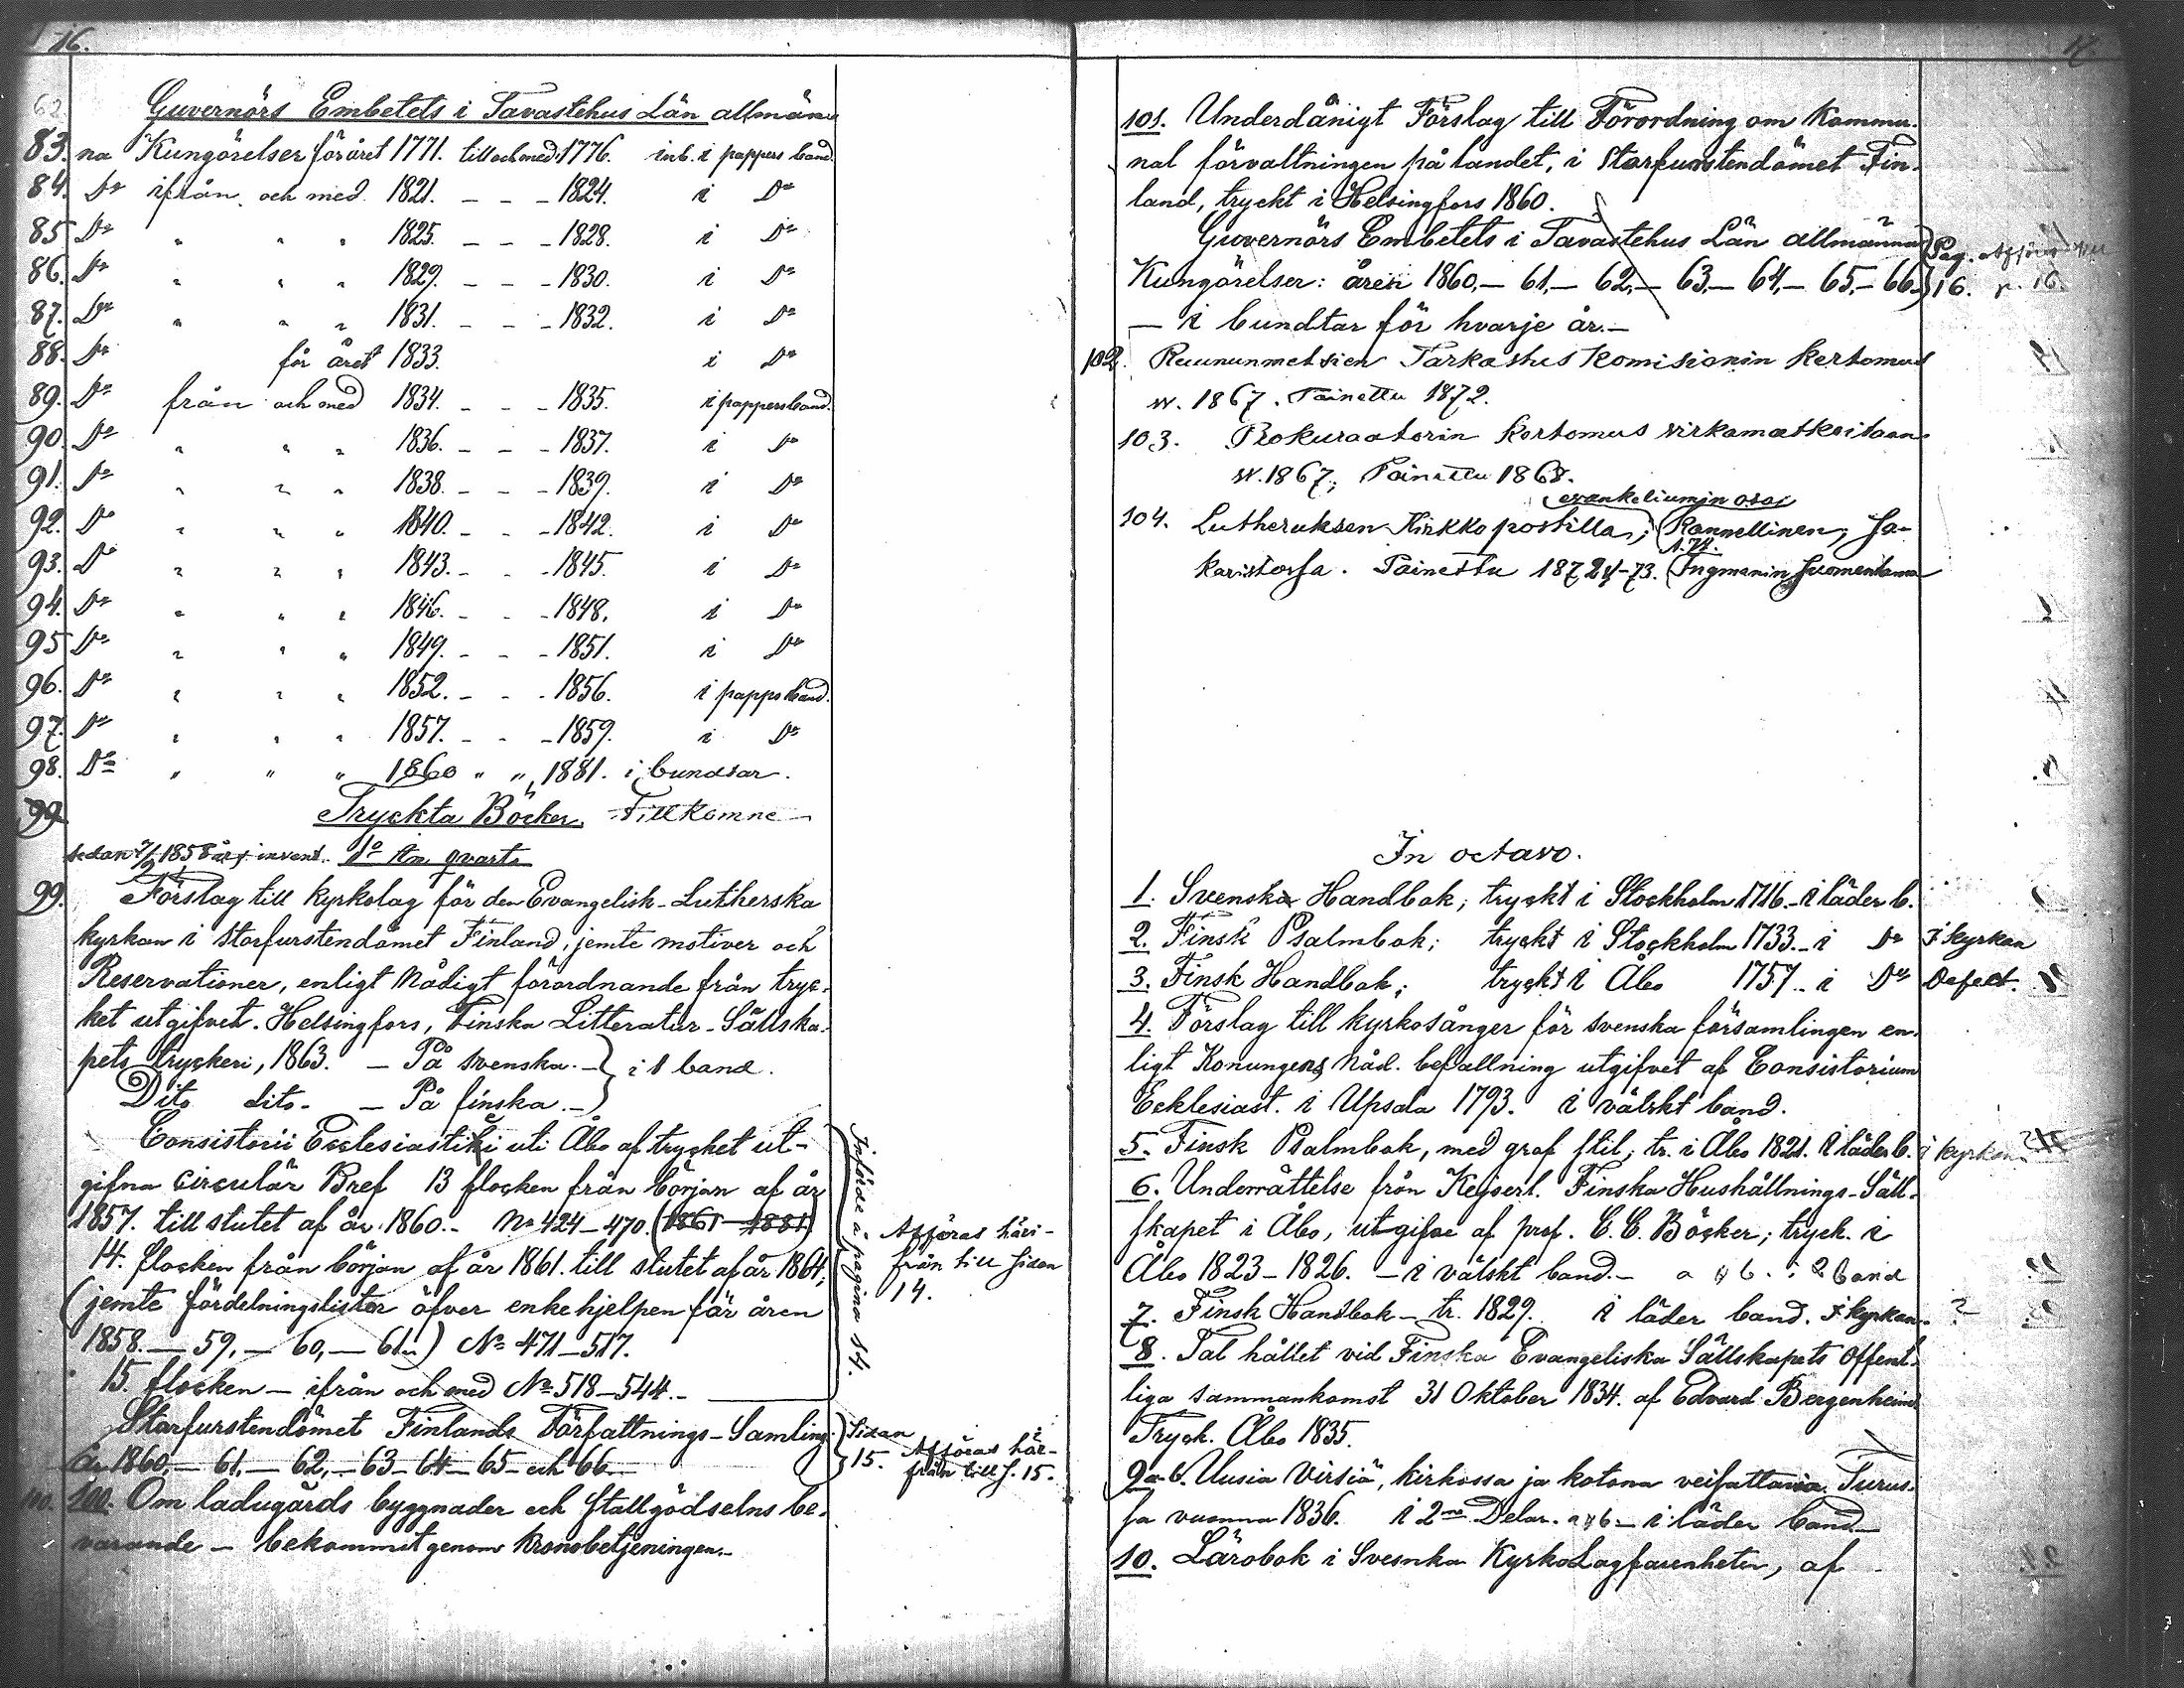 16.
Guvernörs Embetets i Tavastehus Län allmän-
83. na Kungörelser för året 1771. till och med 1776. inb. i pappers band.
84. Do ifrån och med 1821. - - - 1824. i Do
85 Do " " " 1825. - - - 1828. i Do
86. Do " " " 1829. - - - 1830. i Do
87. Do " " " 1831. - - - 1832. i Do
88. Do för året 1833. i Do
89. Do från och med 1834. - - - 1835. i pappersband.
90. Do " " " 1836. - - - 1837. i Do
91. Do " " " 1838. - - - 1839. i Do
92. Do " " " 1840. - - - 1842. i Do
93. Do " " " 1843. - - - 1845. i Do
94. Do " " " 1846. - - - 1848. i Do
95 Do " " " 1849. - - - 1851. i Do
96. Do " " " 1852. - - - 1856. i papps band.
97. Do " " " 1857. - - - 1859. i Do
98. Do " " " 1860 " " 1881. i bundtar.
99. Tryckta Böcker Tillkomne
sedan 1858 års invent. qvarto
99. Förslag till kyrkolag för den Evangelisk-Lutherska
kyrkan i Storfurstendömet Finland, jemte motiver och
Reservationer, enligt Nådigt förordnande från tryc-
ket utgifvet. Helsingfors, Finska Litteratur-Sällska-
pets tryckeri, 1863. - På svenska.- } i 1 band.
Dito dito - - På finska.-
Consistorii Ecclesiastiki uti Åbo af trycket ut-
gifna Circulär Bref 13 flocken från början af år
1857. till slutet af år 1860.- No 424-470. (1861-1881)
14. flocken från början af år 1861. till slutet af år 1864,
(jemte fördelningslistor öfver enkehjelpen för åren
1858.- 59,- 60,- 61.) No 471-517.
15. flocken - ifrån och med No 518-544.-
Införde å pagina 14.
Afföras häri-
från till sidan
14.
Storfurstendömet Finlands Författnings-Samling.
År 1860,- 61,- 62,- 63- 64- 65- och 66.-
Sidan
15. Afföras här-
från till s. 15.
100. Om ladugårds byggnader och stallgödselns be-
varande - bekommit genom Kronobetjeningen.-
101. Underdånigt Förslag till Förordning om Kommu-
nal förvaltningen på landet, i Storfurstendömet Fin-
land, tryckt i Helsingfors 1860.
Guvernörs Embetets i Tavastehus Län allmänna
Kungörelser: åren 1860,- 61,- 62,- 63,- 64,- 65,- 66.
- i bundtar för hvarje år.-
Pag.
16.
102. Ruununmetsien Tarkastus Komisionin kertomus
w. 1867. Painettu 1872.
103. Prokuraatorin kertomus virkamatkoitaan
w. 1867; Painettu 1868.
evankeliumin osa;
104. Lutheruksen Kirkkopostilla; Rannellinen, Ja-
karistossa. Painettu 1872-73. (Ingmanin Suomentama
In octavo.
1. Svenska Handbok; tryckt i Stockholm 1716.- i läder b.
2. Finsk Psalmbok; tryckt i Stockholm 1733.- i Do I kyrkan
3. Finsk Handbok; tryckt i Åbo 1757.- i Do Defect.
4. Förslag till kyrkosånger för svenska församlingen en-
ligt Konungens Nåd. befallning utgifvet af Consistorium
Ecklesiast. i Upsala 1793. i välskt band.
5. Finsk Psalmbok, med grof stil; tr. i Åbo 1821. i läder b. i kyrkan.
6. Underrättelse från Kejserl. Finska Hushållnings-Säll-
skapet i Åbo, utgifne af prof. C. C. Böcker; tryck. i
Åbo 1823-1826. - i välskt band.- a & b. i 2 band
7. Finsk Handbok - tr. 1829. i läder band. I kyrkan. ?
8. Tal hållet vid Finska Evangeliska Sällskapets Offent-
liga sammankomst 31 Oktober 1834. af Edvard Bergenheim.
Tryck. Åbo 1835.
9 a. b. Uusia Virsiä, kirkossa ja kotona veisattavia. Turus-
sa vuonna 1836. i 2ne Delar. a & b - i läder band.-
10. Lärobok i Svesnka KyrkoLagfarenheten, af